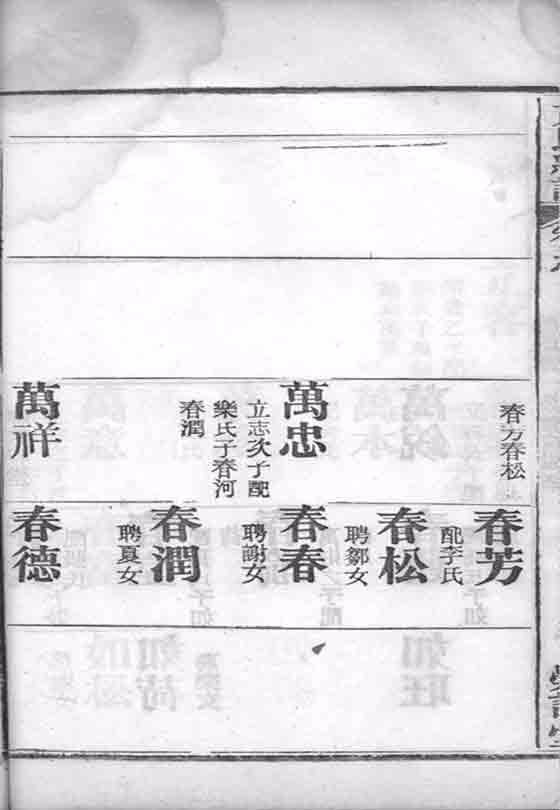 春芳春松
萬忠
立志次子配
樂氏子春河
春潤
萬祥
春芳
配李氏
春松
聘鄒女
春春
聘謝女
春潤
聘夏女
春德